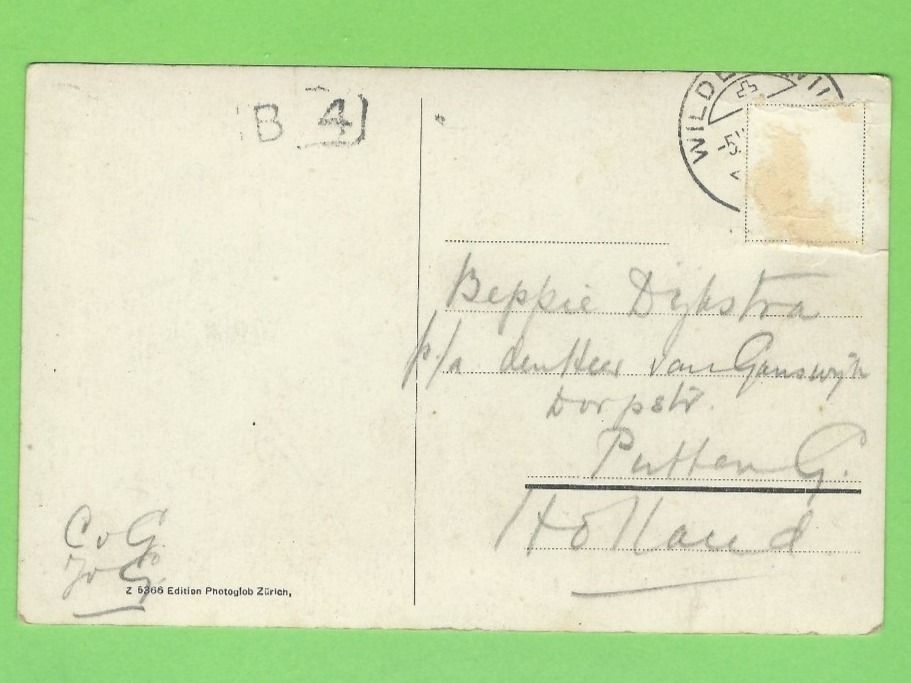 B 4
WILD
Beppie Dijkstra
p/a den Heer van Ganswijk
Dorpstr.
Putten G.
Holland
C v G.
J v G.
Z 5366 Edition Photoglob Zürich,